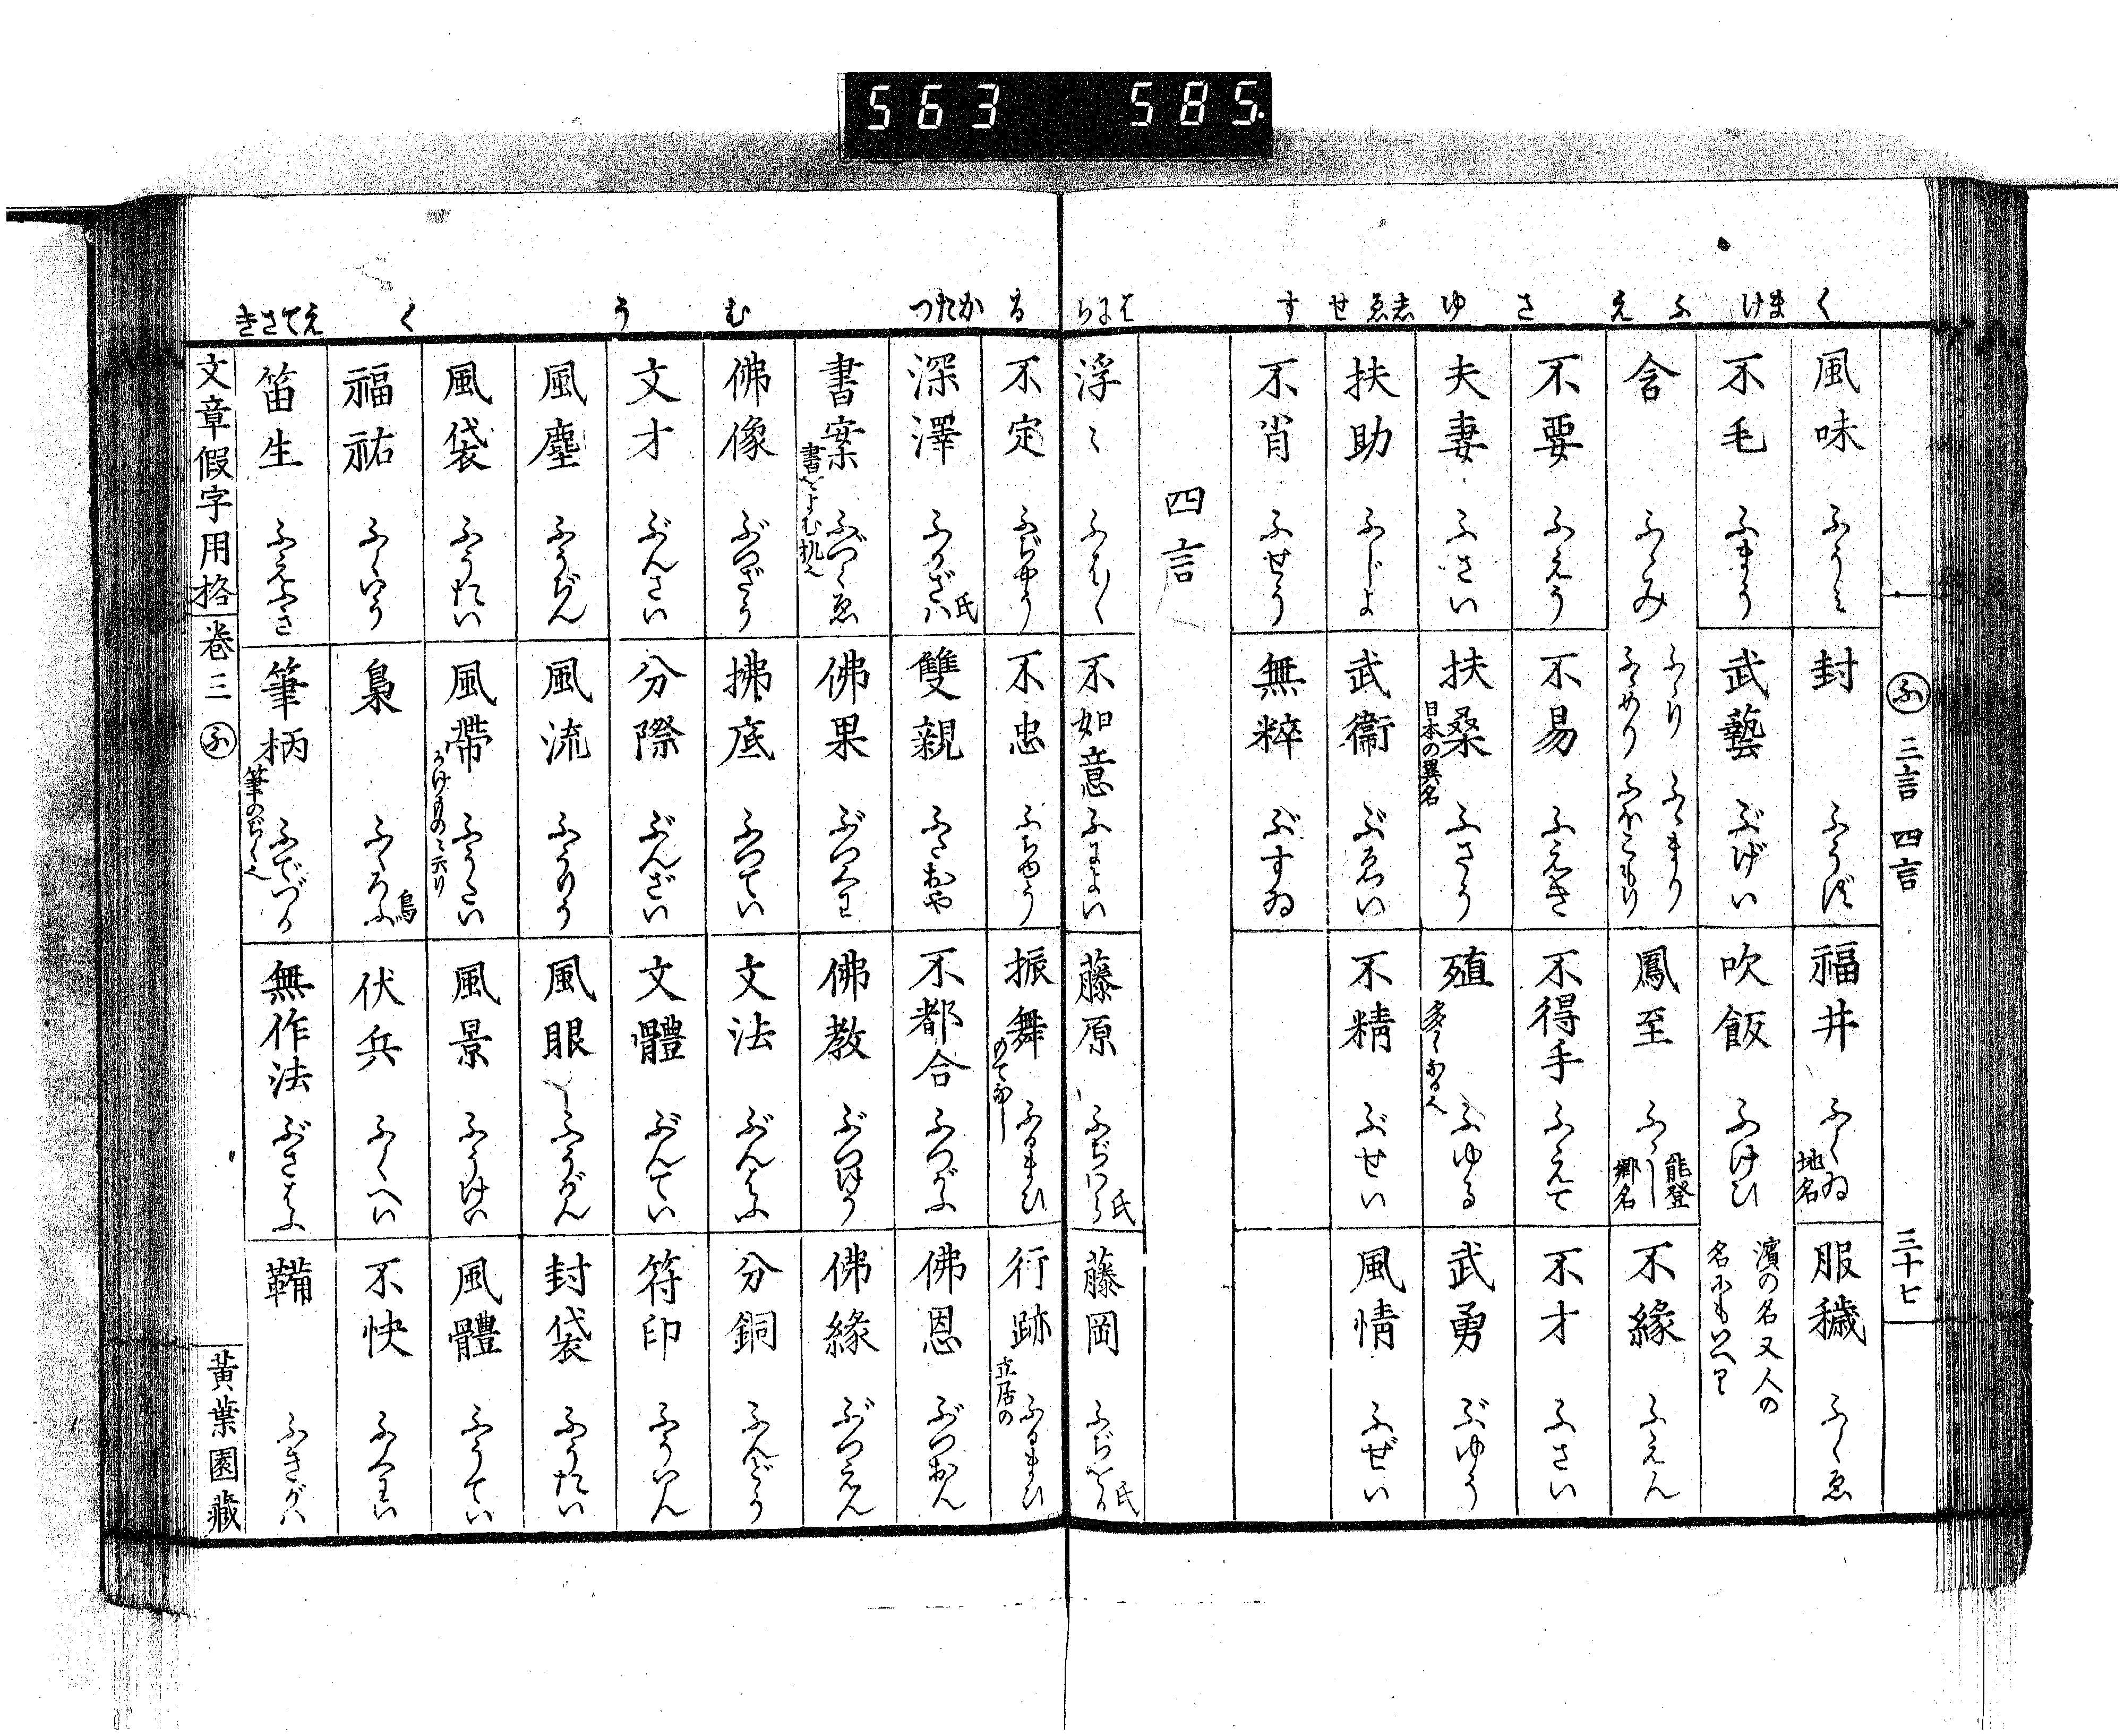 563 585
く けま ふ え さ ゆ ゑし せ す
ふ 三言 四言 三十七
風味 ふうミ 封 ふうず 福井 ふくゐ 地名 服穢 ふくゑ
不毛 ふまう 武藝 ぶげい 吹飯 ふけひ 濱の名又人の名にもいへり
含 ふくみ ふくり ふくまり ふくめり ふほこもり 鳳至 ふくし 能登郷名 不縁 ふえん
不要 ふえう 不易 ふえき 不得手 ふえて 不才 ふさい
夫妻 ふさい 扶桑 日本の異名 ふさう 殖 多くなる也 ふゆる 武勇 ぶゆう
扶助 ふじよ 武衞 ぶゑい 不精 ぶせい 風情 ふぜい
不肖 ふせう 無粹 ぶすゐ
四言
浮〻 ふはく 不如意 ふによい 藤原 ふぢハら 氏 藤岡 ふぢをか 氏
らには る つたか む う く きさてえ
不定 ふぢやう 不忠 ふちゆう 振舞 もてなし ふるまひ 行跡 立居の ふるまひ
深澤 ふかざハ 氏 雙親 ふたおや 不都合 ふつがふ 佛恩 ぶつおん
書案 書をよむ机也 ふづくゑ 佛果 ぶつくわ 佛教 ぶつけう 佛緣 ぶつえん
佛像 ぶつざう 拂底 ふつてい 文法 ぶんはふ 分銅 ふんどう
文才 ぶんさい 分際 ぶんざい 文體 ぶんてい 符印 ふういん
風塵 ふうぢん 風流 ふうりう 風眼 ふうがん 封袋 ふうたい
風袋 ふうたい 風帶 かけものニ云り ふうたい 風景 ふうけい 風體 ふうてい
福祐 ふくいう 梟 ふくろふ 鳥 伏兵 ふくへい 不快 ふくわい
笛生 ふえふき 筆柄 筆のぢく也 ふでづか 無作法 ぶさはふ 鞴 ふきがハ
文章假字用格 卷三 ふ 黄葉園藏